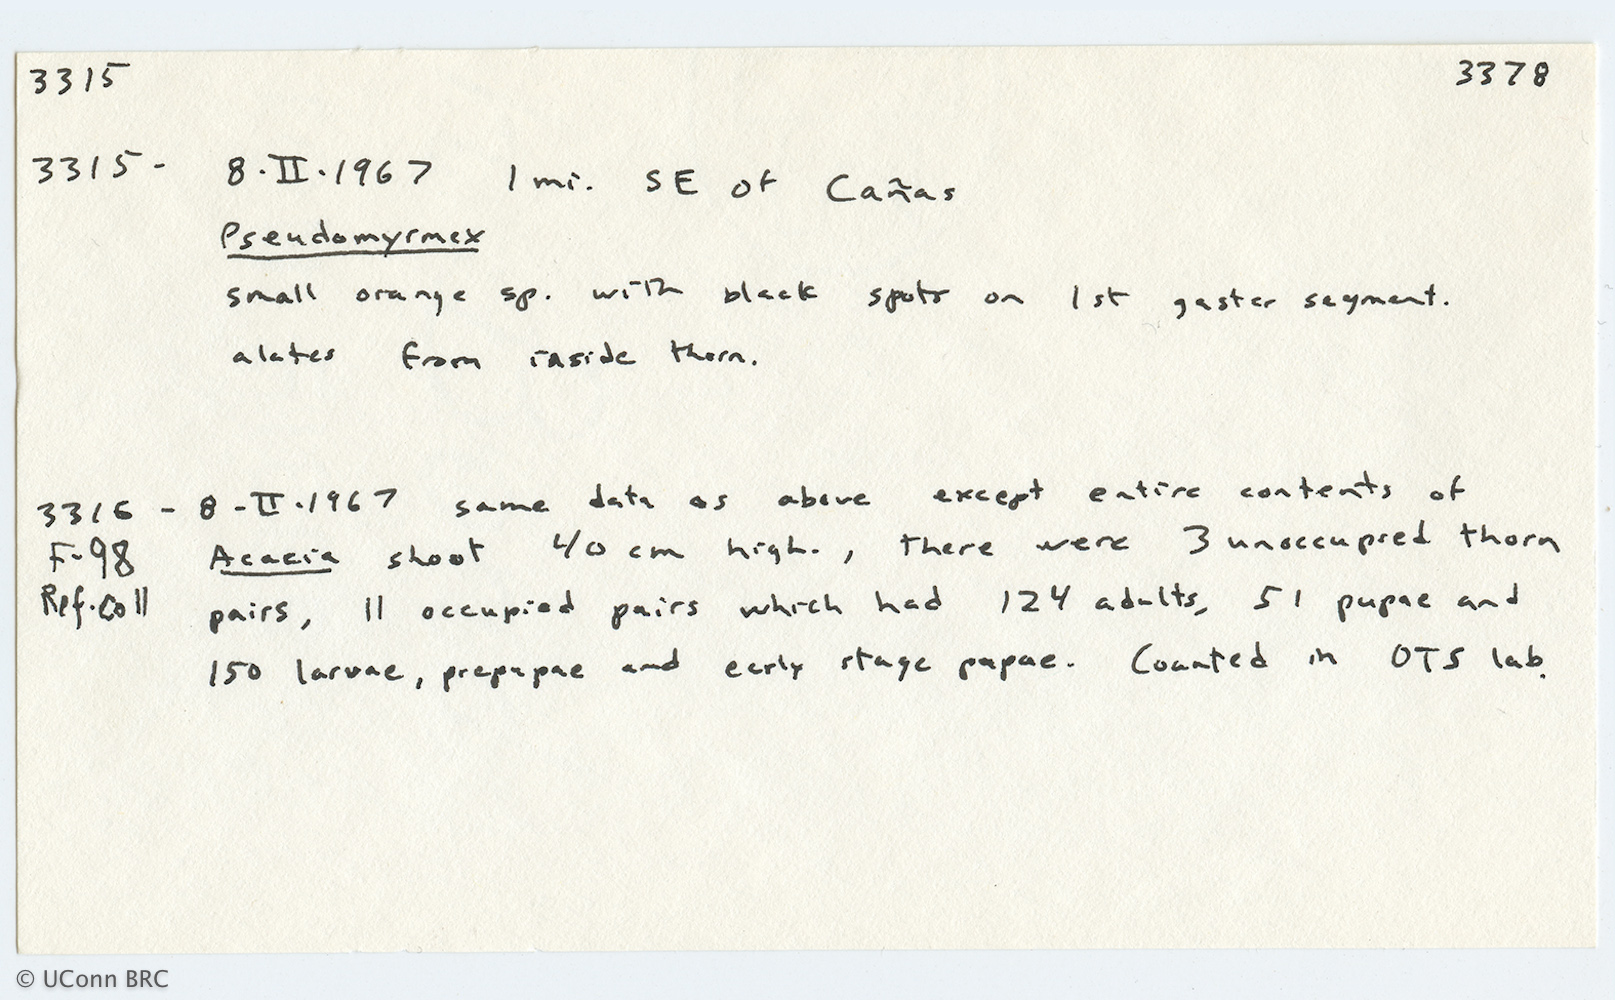 3315 3378
3315 - 8.II.1967 1 mi. SE of Cañas
Pseudomyrmex
small orange sp. with black spots on 1st gaster segment.
alates from inside thorn.
3316 - 8-II.1967 same data as above except entire contents of
F-98 Acacia shoot 40 cm high., there were 3 unoccupied thorn
Ref. Coll pairs, 11 occupied pairs which had 124 adults, 51 pupae and
150 larvae, prepupae and early stage pupae. Counted in OTS lab.
© UConn BRC